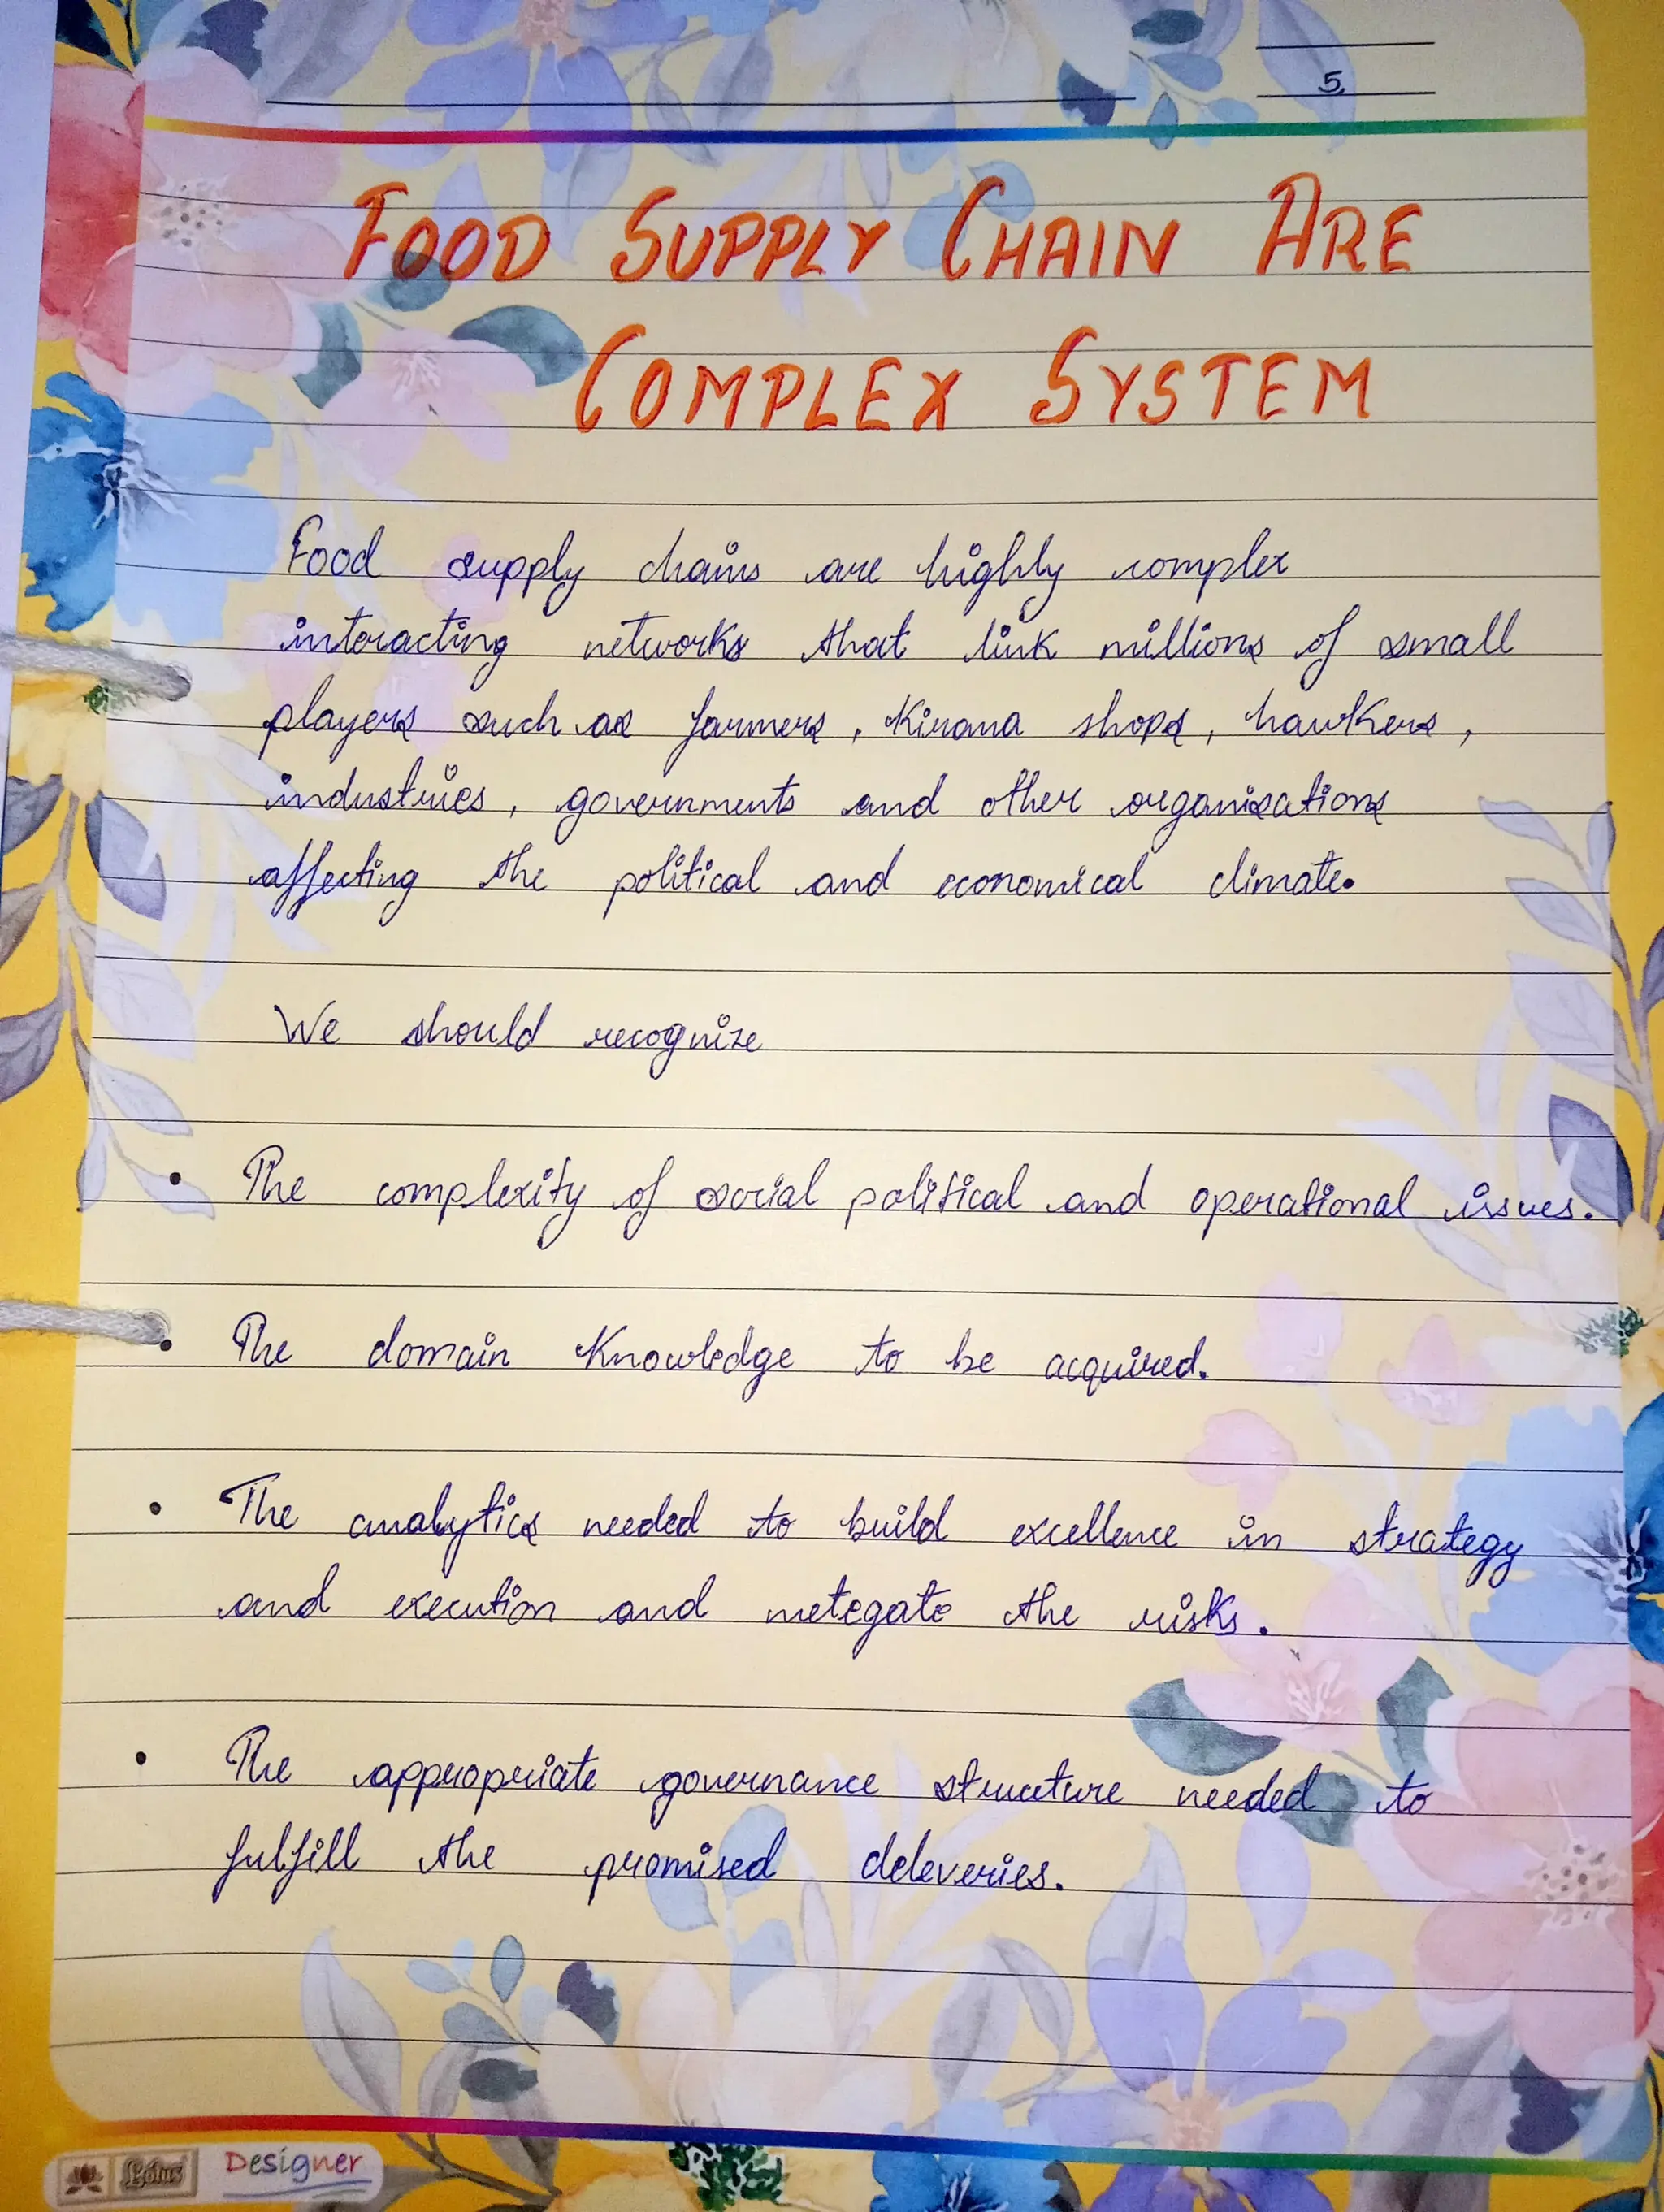 5.
FOOD SUPPLY CHAIN ARE
COMPLEX SYSTEM
Food supply chains are highly complex
interacting networks that link millions of small
players such as farmers, Kirana shops, hawkers,
industries, governments and other organisations
affecting the political and economical climate.
We should recognize
• The complexity of social political and operational issues.
• The domain Knowledge to be acquired.
• The analytics needed to build excellence in strategy
and execution and metegate the risks.
• The appropriate governance structure needed to
fulfill the promised deleveries.
Lotus Designer